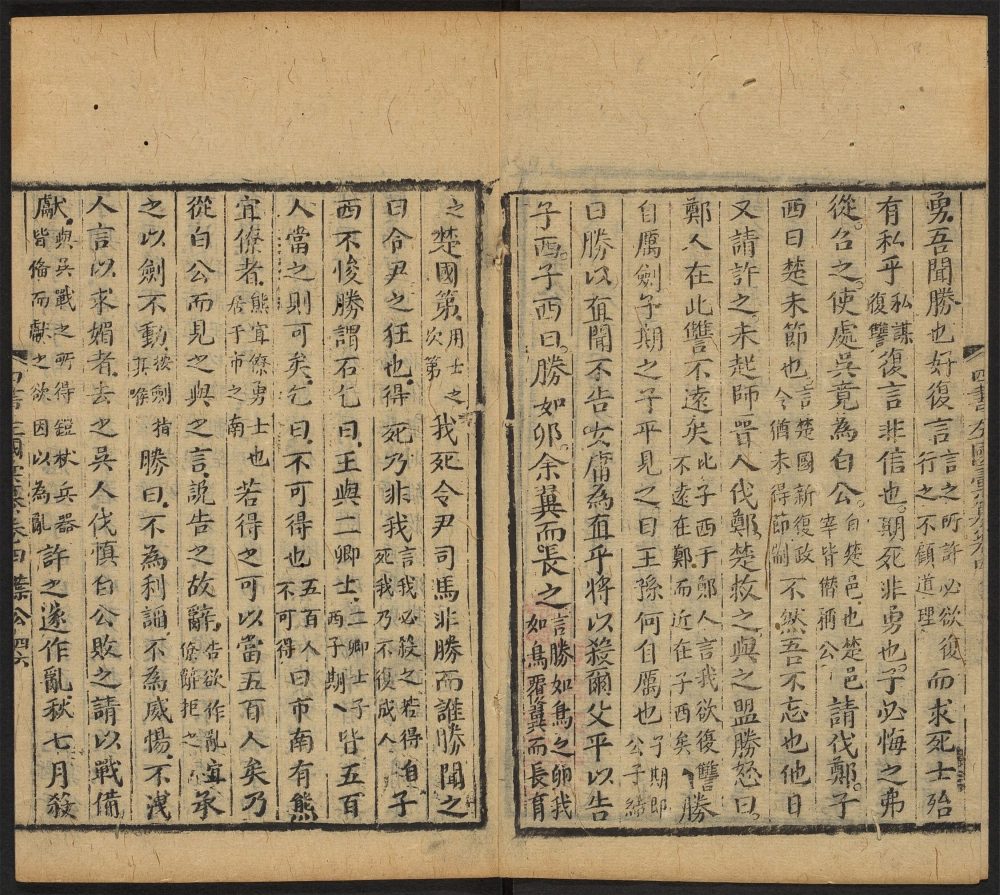 勇吾聞勝也好復言言之所許必欲復行之不顧道理而求死士殆
有私乎私謀復讐復言非信也期死非勇也子必悔之弗
從召之使處吳竟為白公白楚邑也楚邑宰皆僭稱公請伐鄭子
西曰楚未節也言楚國新復政令猶未得節制不然吾不忘也他日
又請許之未起師晉人伐鄭楚救之與之盟勝怒曰
鄭人在此讐不遠矣此子西于鄭人言我欲復讐不遠在鄭而近在子西矣勝
自厲劍子期之子平見之曰王孫何自厲也子期即公子結
曰勝以直聞不告女庸為直乎將以殺爾父平以告
子西子西曰勝如卵余翼而長之言勝如鳥之卵我如鳥覆翼而長育
之楚國第用士之次第我死令尹司馬非勝而誰勝聞之
曰令尹之狂也得死乃非我言我必殺之若得自死我乃不復成人子
西不悛勝謂石乞曰王與二卿士二卿士子西子期皆五百
人當之則可矣乞曰不可得也五百人不可得曰市南有熊
宜僚者熊宜僚勇士也居于市之南若得之可以當五百人矣乃
從白公而見之與之言說告之故辭告欲作亂宜僚辭拒之宜承
之以劍不動按劍指其喉勝曰不為利謟不為威惕不洩
人言以求媚者去之吳人伐慎白公敗之請以戰備
獻與吳戰之所得鎧杖兵器皆備而獻之欲因以為亂許之遂作亂秋七月殺